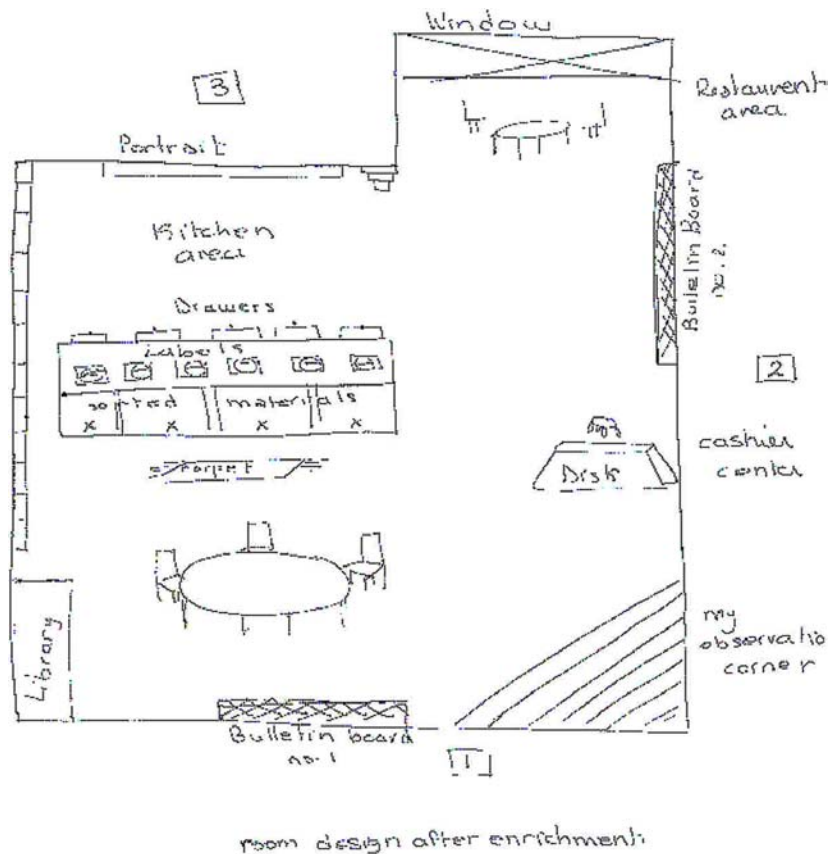 Window
3
Restaurent
area
Portrait
Kitchen
area
Bulletin Board
no. 2.
Drawers
Labels
sorted materials
x x x x
2
cashier
center
Disk
Carpet
my
observatio
corner
Library
Bulletin board
no. 1
1
room design after enrichment